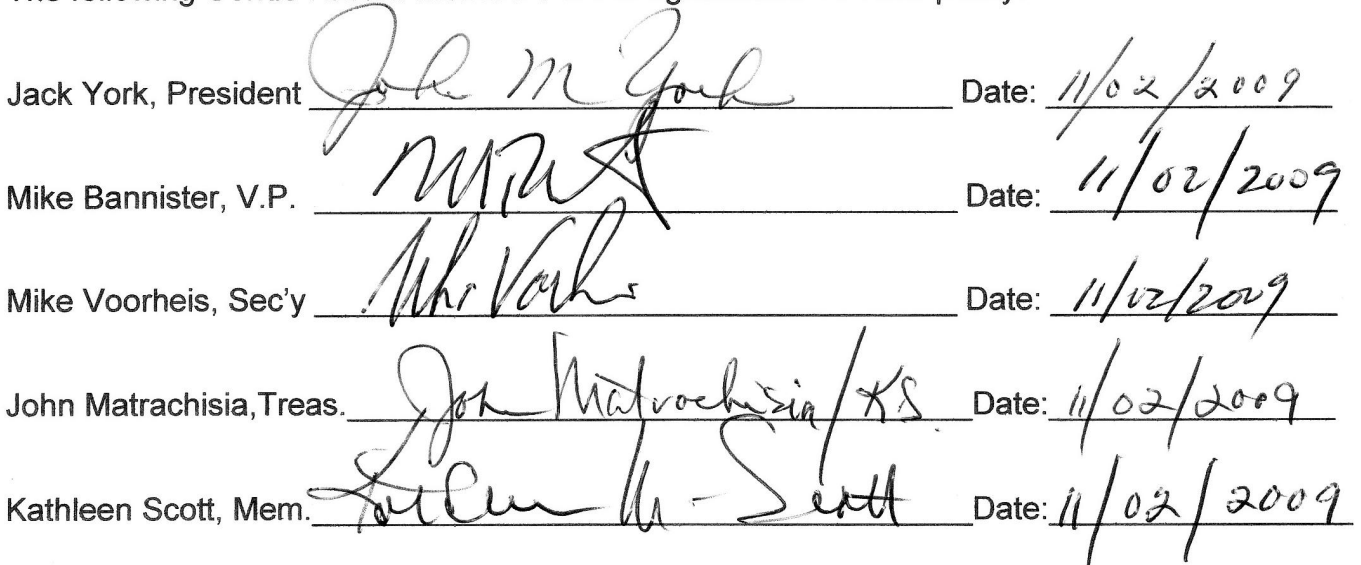 Jack York, President John M York Date: 11/02/2009
Mike Bannister, V.P. Date: 11/02/2009
Mike Voorheis, Sec'y Date: 11/02/2009
John Matrachisia,Treas. John Matrachisia/KS Date: 11/02/2009
Kathleen Scott, Mem. Kathleen M-Scott Date: 11/02/2009